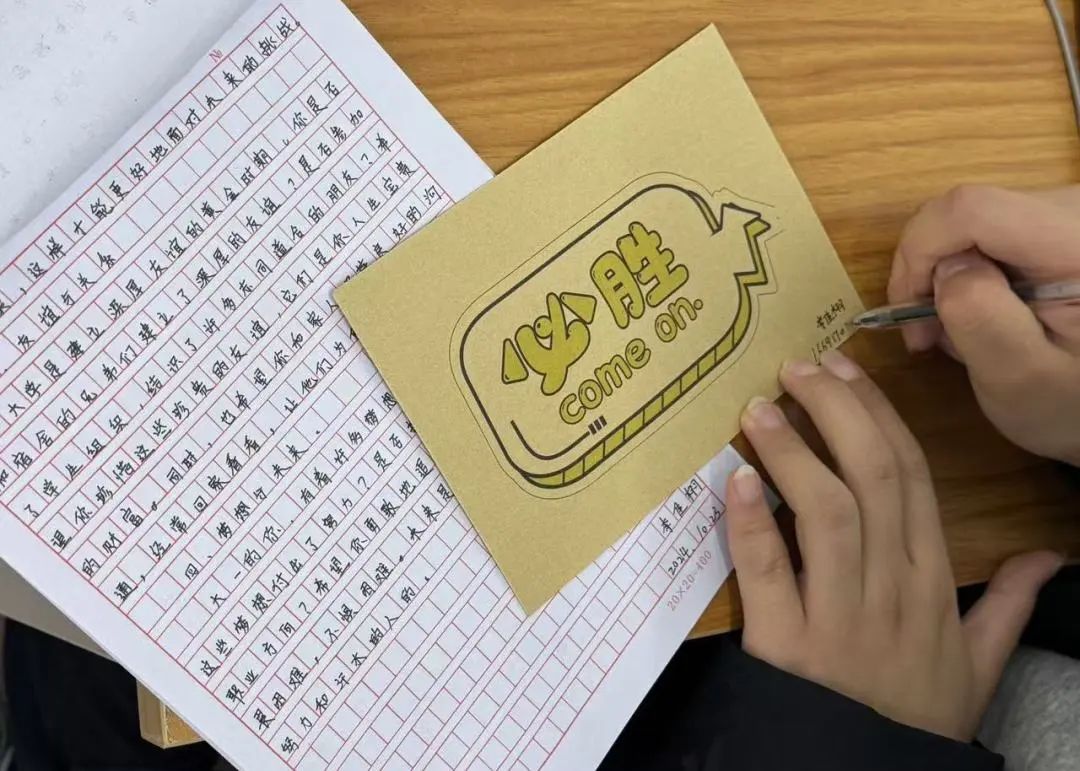 №
，这样才能更好地面对未来的挑战。
友谊与关系
大学是建立深厚友谊的黄金时期，你是否
和宿舍的兄弟们建立了深厚的友谊？是否参加
了学生组织，结识了许多志同道合的朋友？希
望你珍惜这些珍贵的友谊，它们是你人生宝贵
的财富。同时，也希望你和家
好的沟
通，经常回家看看，让他们为你
回、梦想与未来
大一的你，有着什么
梦想
这些梦想付出了努力？是否
职业方向？希望你勇敢地追
畏困难，不惧困难。未来是
努力和汗水的人的。
李佳
2024.10.25
20×20=400
必胜
come on.
李佳